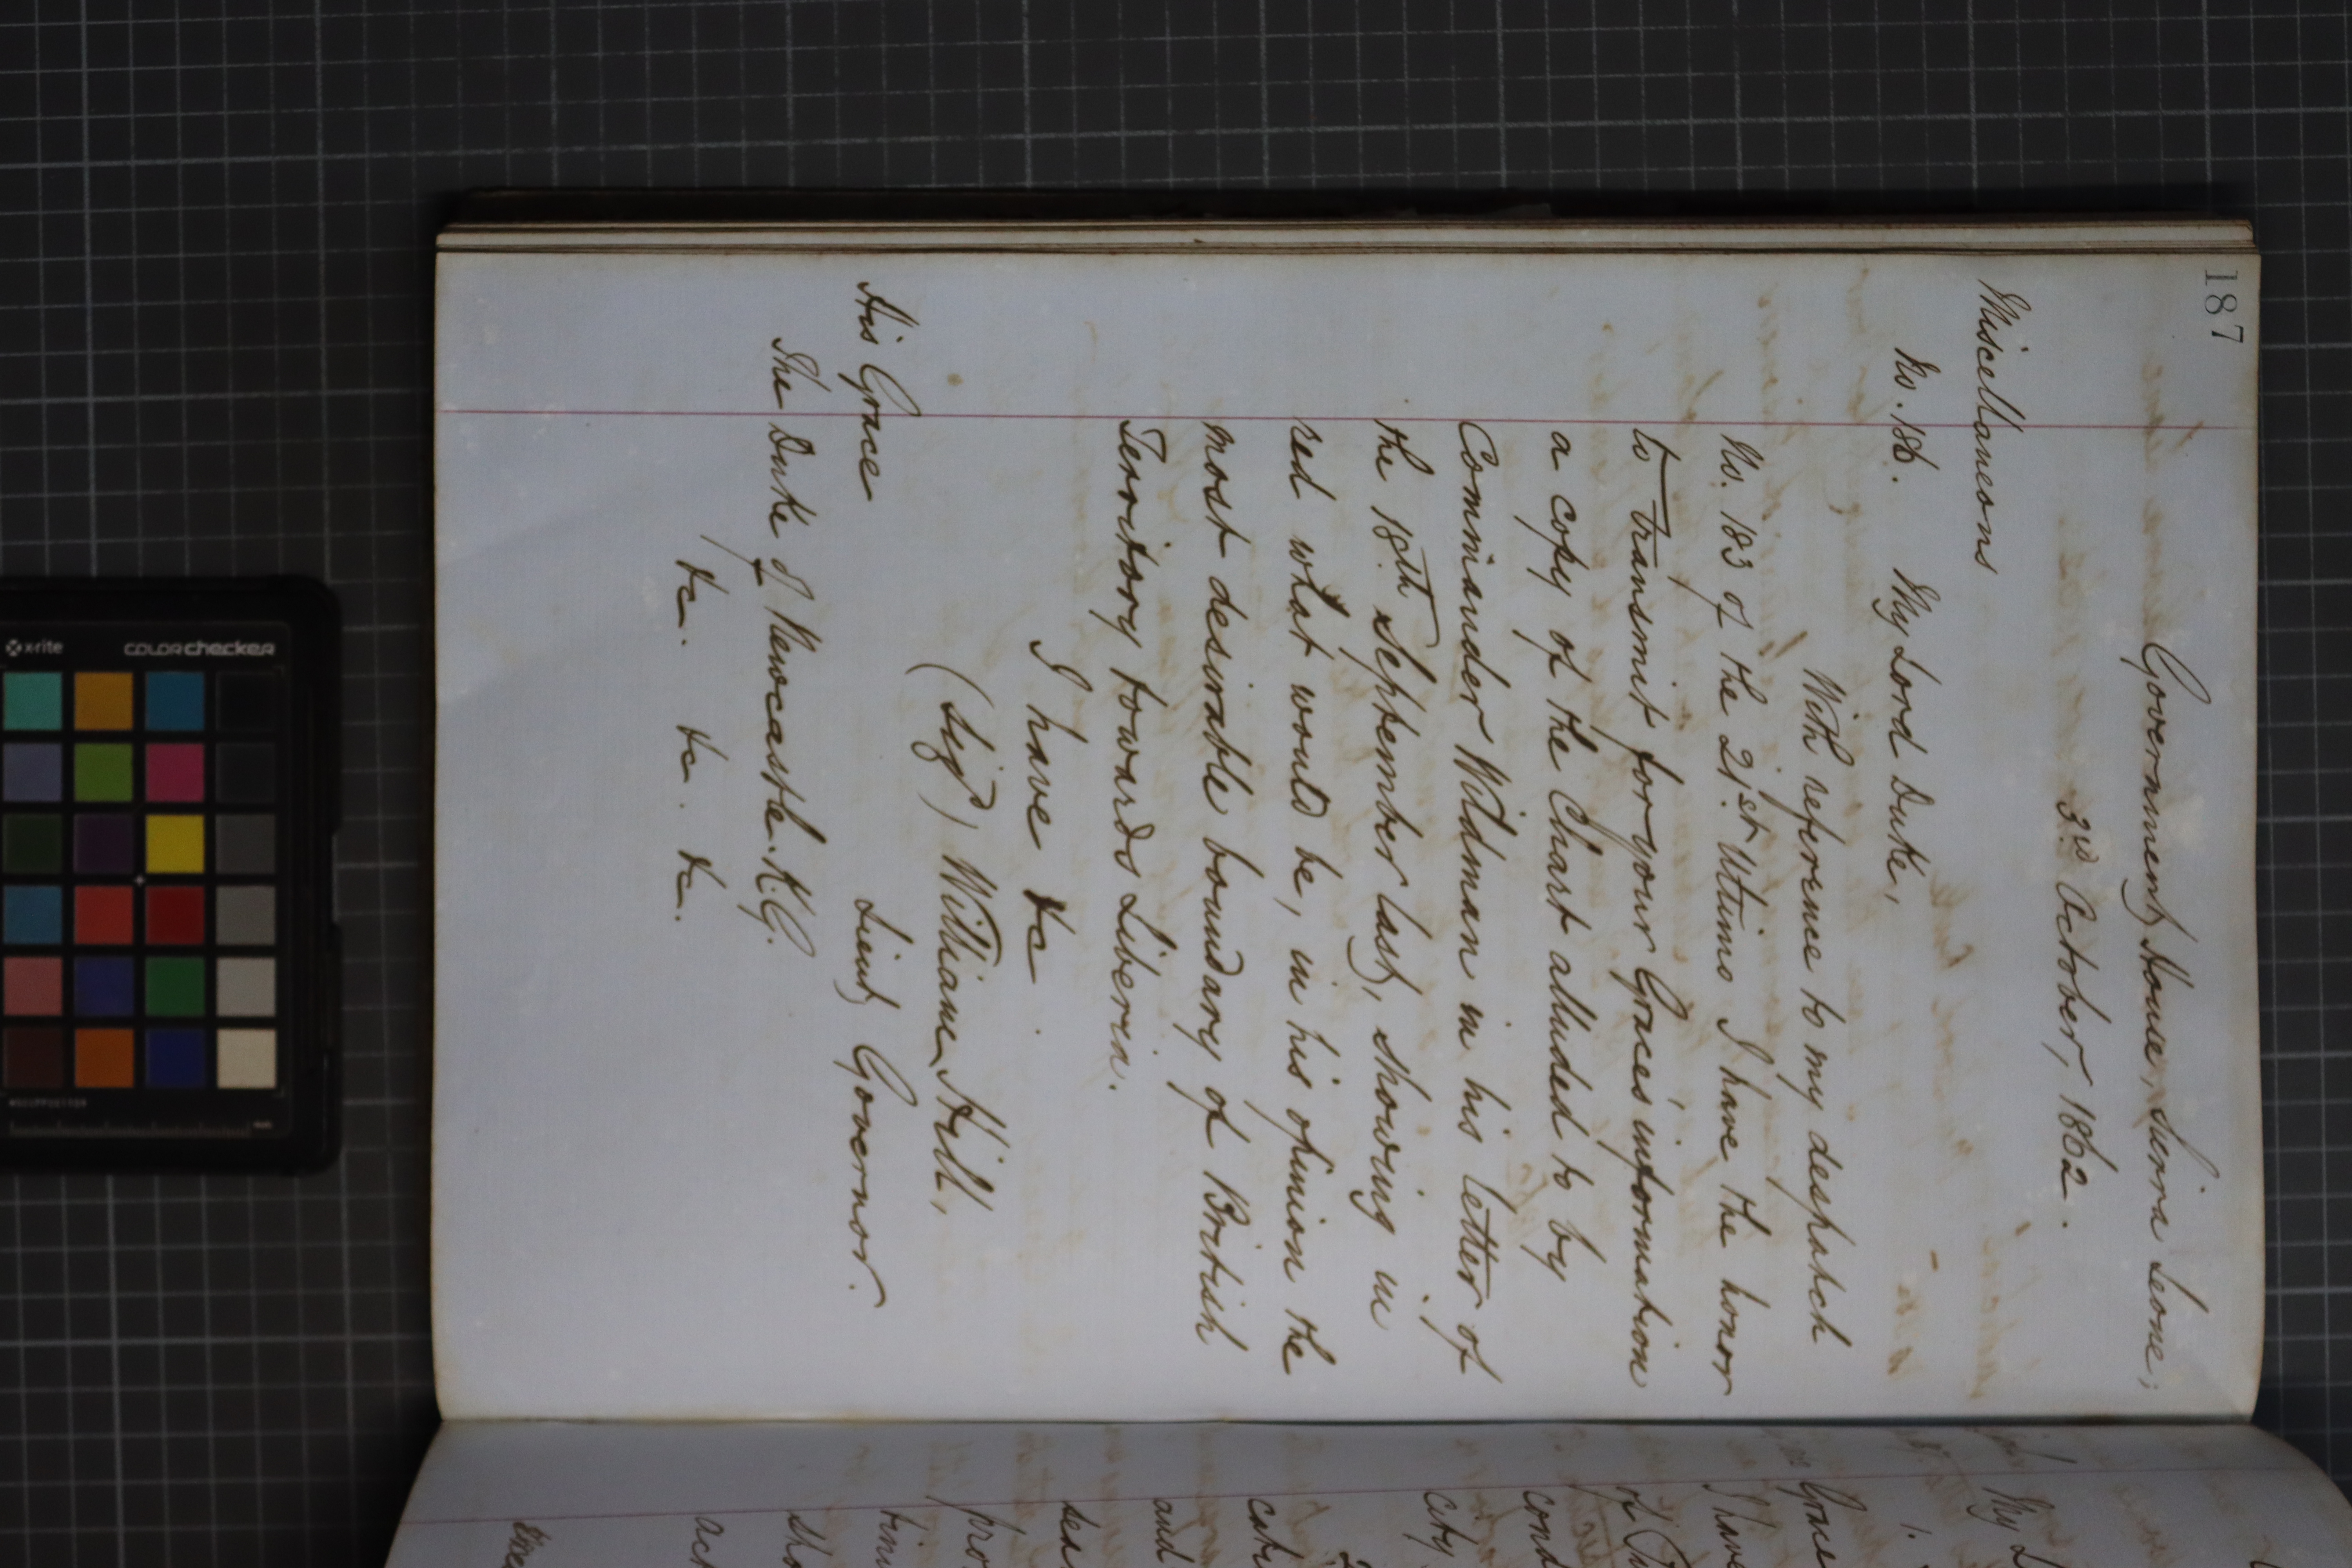 187
Government House, Sierra Leone,
3rd October, 1862.
Miscellaneous
No. 186. My Lord Duke,
With reference to my despatch
No. 183 of the 21st Ultimo I have the honor
to transmit for your Grace's information
a copy of the Chart alluded to by
Commander Wildman in his letter of
the 18th September last, showing in
red what would be, in his opinion the
most desirable boundary of British
Territory towards Liberia.
I have &c.
(Sigd) William Hill,
Lieut. Governor.
His Grace
The Duke of Newcastle. K.G.
&c. &c. &c.
My L
1.
Grace
I have
of
cond
City
2
cate
and
sea
pro
timi
sho
ack
x-rite
colorchecker